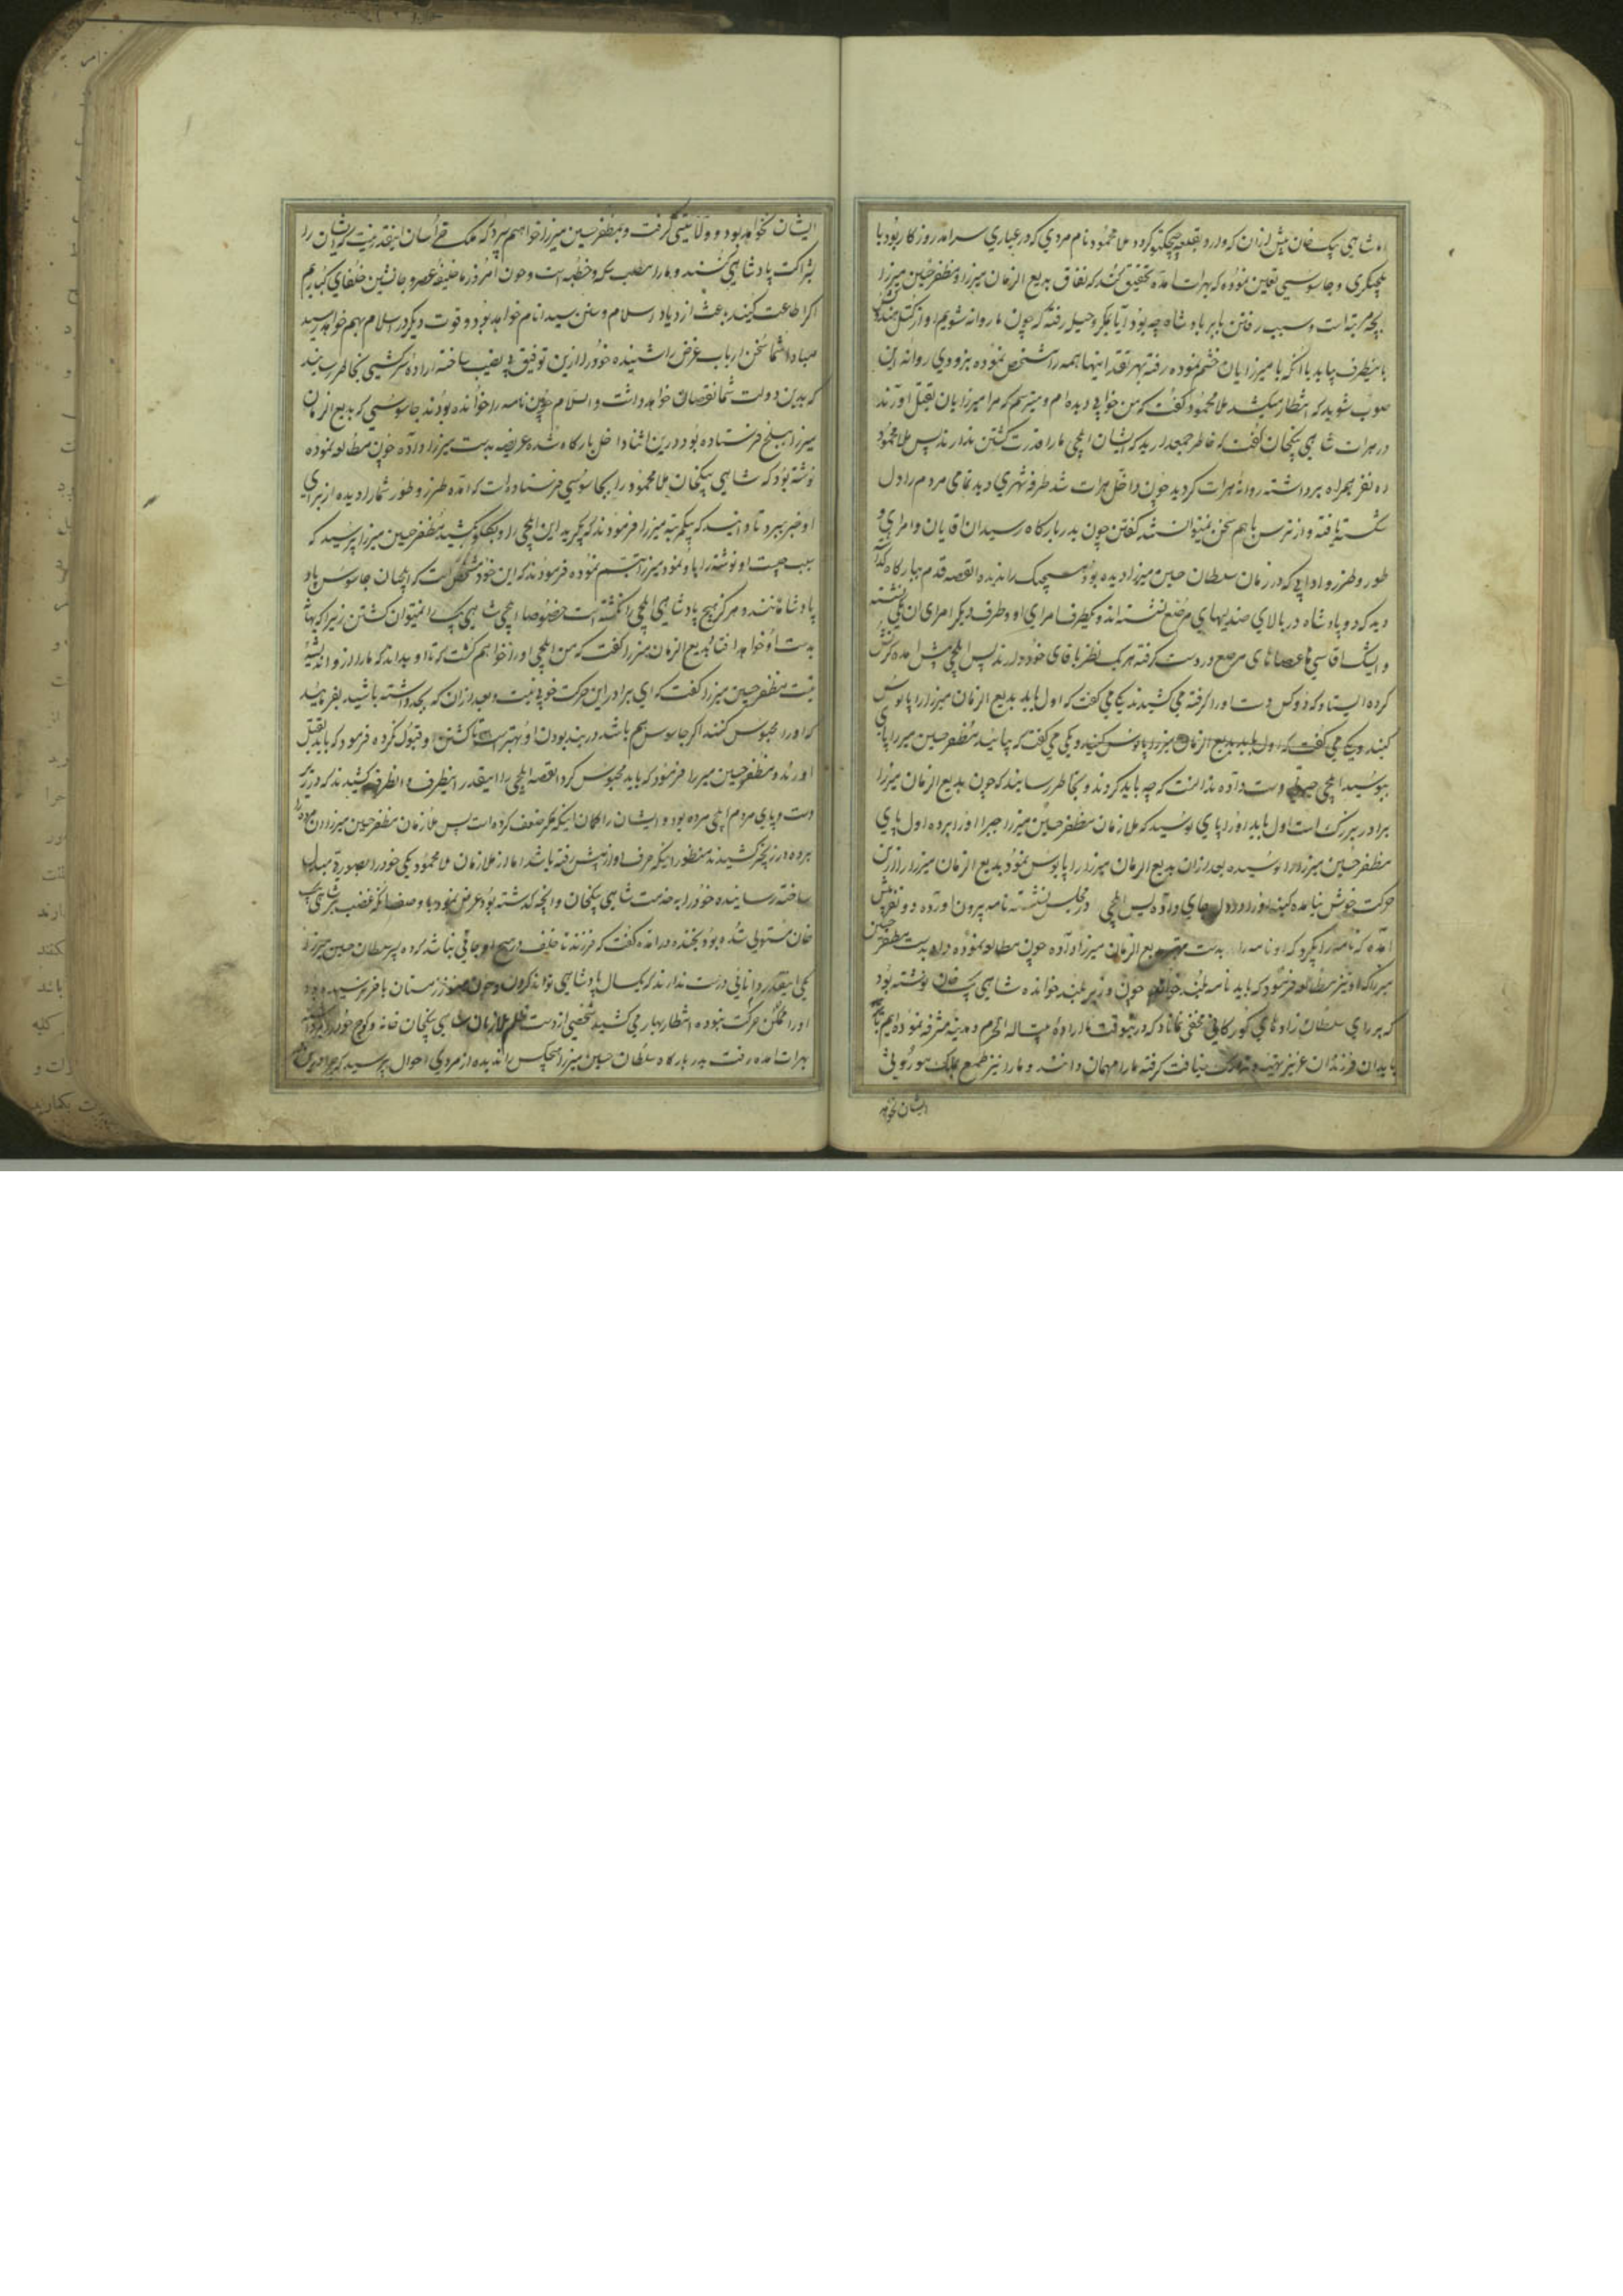 اما شاهی بیک خان پیش ازان که وارد بقلعه چیچکتو کردد ملا محمود نام مردی که در عیاری سرامد روزکار بود با
یلچیکری و جاسوسی تعین نموده که بهرات امده تحقیق کند که نفاق بدیع الزمان میرزا و مظفر حسین میرزا
بچه مرتبه است و سبب رفتن بابر پادشاه چه بود آیا بمکر و حیله رفته که چون ما روانه شویم او از کتل
باینطرف بیاید یا انکه با میرزایان خشم نموده رفته بهر تقدیر اینها همه را مشخص نموده بزودی روانه این
صوب شوید که انتظار میکشد ملا محمود کفت که من خوابی دیده ام و میترسم که مرا میرزایان بقتل اورند
در هرات شاهی بیکخان کفت که خاطر جمع دارید که ایشان ایلچی مارا قدرت کشتن ندارند پس ملا محمود
ده نفر بهمراه برداشته روانهٔ هرات کردید چون داخل هرات شد طرفه شهری دید تمامی مردم را دل
شکسته یافته و از ترس با هم سخن نمیتوانسته کفتن چون بدر بارکاه رسیدان اقایان و امرای و
طور و طرز و ادابی که در زمان سلطان حسین میرزا دیده بود هیچیک را ندیده القصه قدم ببارکاه
دید که دو پادشاه در بالای صندلیهای مرصع نشسته اند و یکطرف امرای او و طرف دیکر امرای ان یکی نشسته
و ایشک اقاسی با عصاهای مرصع در دست کرفته هر یک نظر باقای خود دارند پس ایلچی پیش امده کرنش
کرده ایستاد که دو کس دست او را کرفته می کشیدند یکی می کفت که اول باید بدیع الزمان میرزا را پابوس
کنید و یکی می کفت که اول باید بدیع الزمان میرزا را پابوس کنید و یکی می کفت که بیائید مظفر حسین میرزا را پای
ببوسید ایلچی حیران دست داده ندانست که چه باید کردند و بخاطر رسانیند که چون بدیع الزمان میرزا
برادر بزرک است اول باید او را پای بوسید که ملازمان مظفر حسین میرزا جبرا او را برده اول پای
مظفر حسین میرزا را بوسیده بعد ازان بدیع الزمان میرزا را پابوس نمود بدیع الزمان میرزا را ازین
حرکت خوش نیامده کینه او را در دل جای داده پس ایلچی در مجلس نشسته نامه بیرون اورده دو نفر پیش
امده که نامه را بکیرد که او نامه را بدست بدیع الزمان میرزا داده چون مطالعه نموده داد بدست مظفر حسین
میرزا که او نیز مطالعه فرمود که باید نامه بلند خواند چون وزیر بلند خوانده شاهی بیک خان نوشته بود
که بر رای سلطان زادهای کورکانی مخفی نماند که درینوقت ما اراده بیت اله الحرم و مدینه مشرفه نموده ایم
باید ان فرزندان عزیز تهیه و تدارک ضیافت کرفته مارا مهمان دانند و مارا نیز طمع بملک موروثی
ایشان نخواهد
ایشان نخواهد بود و ولایتی کرفت و بمظفر حسین میرزا خواهیم سپرد که ملک خراسان اینقدر نیست که ایشان را
بشراکت پادشاهی کنند و مارا مطلب سکه و خطبه است و چون امروز ما خلیفهٔ عصر و جانشین خلفای کباریم
اکر اطاعت کنید باعث ازدیاد اسلام و سنن سید انام خواهد بود و قوت دیکر در اسلام بهم خواهد رسید
مبادا شما سخن ارباب غرض را شنیده خود را ازین توفیق بی نصیب ساخته اراده سرکشی بخاطر رسانند
که بدین دولت شما نقصان خواهد داشت والسلام چون نامه را خوانده بودند جاسوسی که بدیع الزمان
میرزا ببلخ فرستاده بود درین اثنا داخل بارکاه شده عریضه بدست میرزا داده چون مطالعه نموده
نوشته بود که شاهی بیکخان ملا محمود را بجاسوسی فرستاده است که امده طرز و طور شما را دیده از برای
او خبر ببرد تا دانسته که بیکمرتبه میرزا فرمودند که بکیرید این ایلچی را و بکشید مظفر حسین میرزا پرسید که
سبب چیست او نوشته را باو نمود میرزا تبسم نموده فرمودند که این خود مشخص است که ایلچیان جاسوس پاد
پادشاهانند و هرکز هیچ پادشاهی ایلچی را نکشته است خصوصا ایلچی شاهی بیک را نمیتوان کشتن زیرا که بهانه
بدست او خواهد افتاد بدیع الزمان میرزا کفت که من ایلچی او را خواهم کشت که تا او بداند که مارا از او اندیشهٔ
نیست مظفر حسین میرزا کفت که ای برادر این حرکت خوبی نیست و بعد ازان که بجد داشته باشید بفرمائید
که او را محبوس کنند اکر جاسوس هم باشد در بند بودن او بهتر است تا کشتن او قبول نکرده فرمود که باید بقتل
اورند و مظفر حسین میرزا فرمود که باید محبوس کرد القصه ایلچی را اینقدر اینطرف و انطرف کشیدند که در زیر
دست و پای مردم ایلچی مرده بود و ایشان را کمان اینکه مکر ضعف کرده است پس ملازمان مظفر حسین میرزا ان مرده را
برده در زنجیر کشیدند منظور اینکه حرف او از پیش رفته باشد اما از ملازمان ملا محمود یکی خود را بصورة مبدل
ساخته رسانیده خود را به خدمت شاهی بیکخان و انچه کذشته بود عرض نمود با وصف انکه غضب بر شاهی بیک
خان مستولی شده بود بخنده در امده کفت که فرزند ناخلف در هیچ اوجاقی نباشد کرده پسر سلطان حسین میرزا
یکی اینقدر دانائی درست ندارند که یکسال پادشاهی توانند کردن و چون هنوز زمستان باخر نرسیده بود
او را ممکن حرکت نبوده انتظار بهار می کشید شخصی از دست ظلم ملازمان شاهی بیکخان خانه و کوچ خود را برداشته
بهرات امده رفت بدر بارکاه سلطان حسین میرزا هیچکس را ندیده از مردکی احوال پرسید که